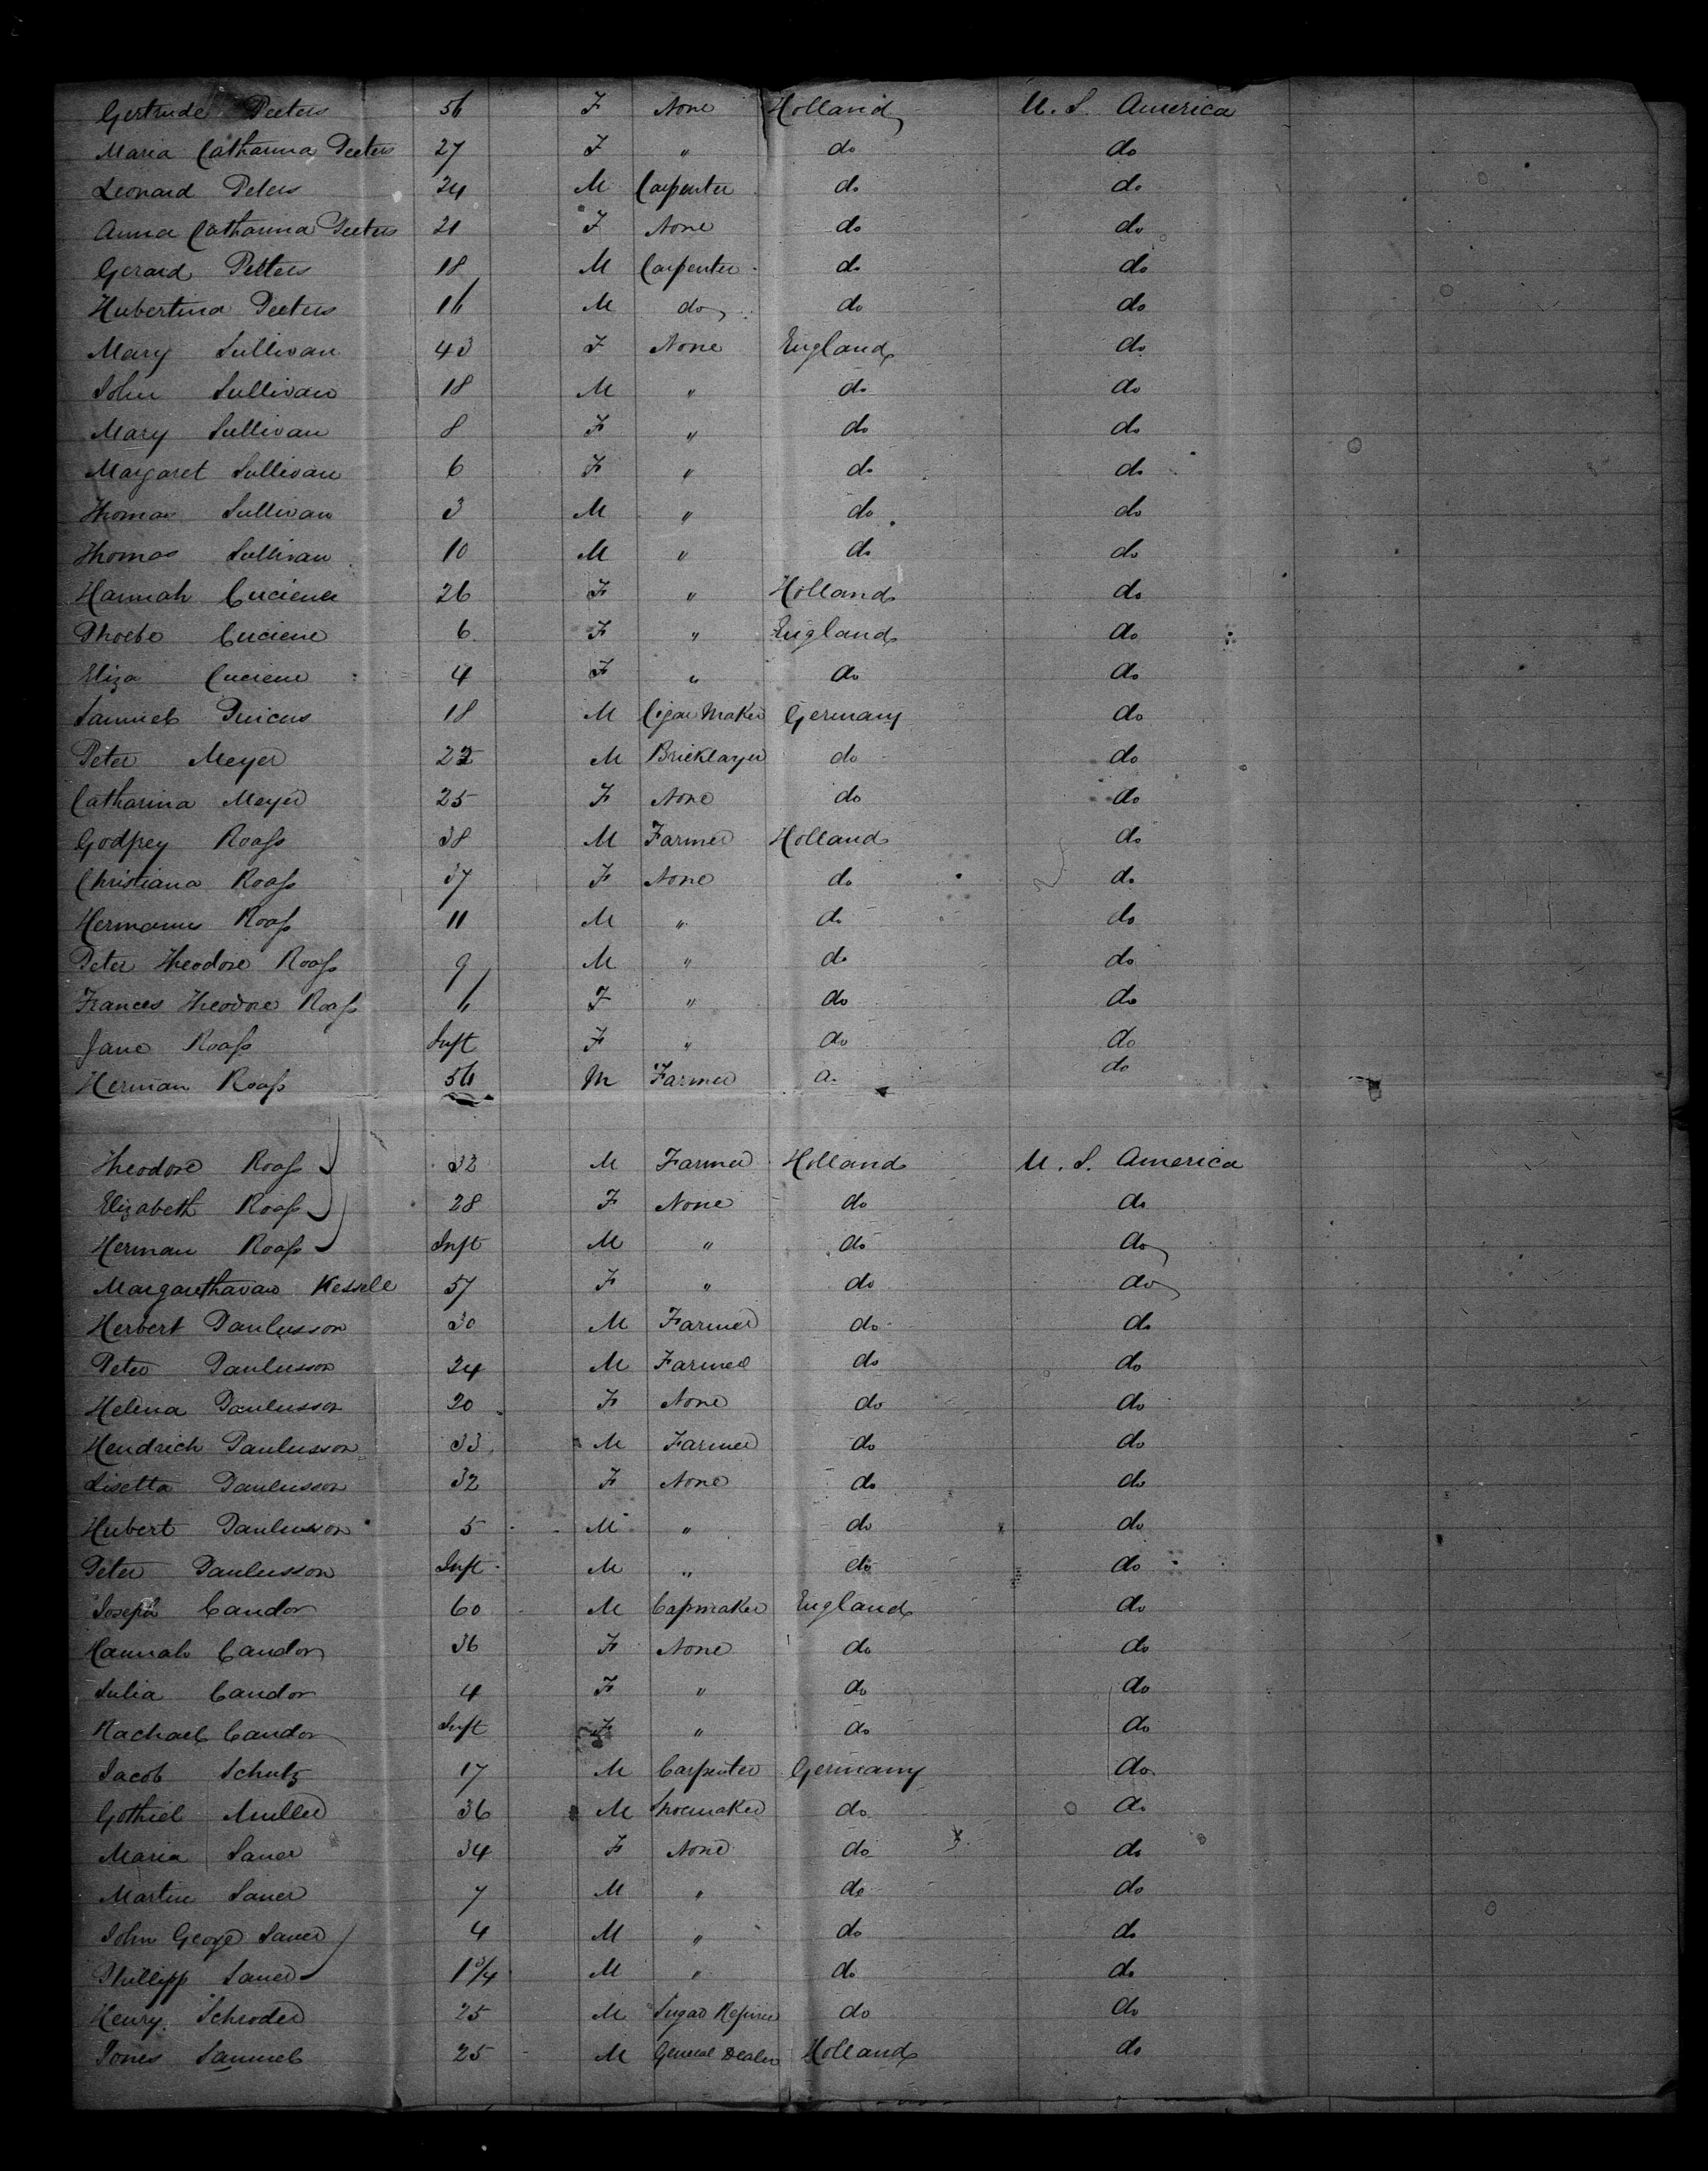 Gertrude Peeters 56 F None Holland U. S. America
Maria Catharina Peeters 27 F " do do
Leonard Peters 24 M Carpenter do do
Anna Catharina Peeters 21 F None do do
Gerard Petters 18 M Carpenter do do
Hubertina Peeters 16 M do do do
Mary Sullivan 43 F None England do
John Sullivan 18 M " do do
Mary Sullivan 8 F " do do
Margaret Sullivan 6 F " do do
Thomas Sullivan 3 M " do do
Thomas Sullivan 10 M " do do
Hannah 26 F " Holland do
Phoebe 6 F " England do
Eliza 4 F " do do
Samuel 18 M Cigar Maker Germany do
Peter Meyer M Bricklayer do do
Catharina Meyer 25 F None do do
Godfrey Roass 38 M Farmer Holland do
Christiana Roass 37 F None do do
Hermanus Roass 11 M " do do
Peter Theodore Roass 9 M " do do
Frances Theodore Roass 6 F " do do
Jane Roass Inft F " do do
Herman Roass M Farmer do do
Theodore Roass 32 M Farmer Holland U. S. America
Elizabeth Roass 28 F None do do
Herman Roass Inft M " do do
Margarethavan Kessell 57 F " do do
Herbert Paulusson 30 M Farmer do do
Peter Paulusson 24 M Farmer do do
Helena Paulusson 20 F None do do
Hendrich Paulusson 33 M Farmer do do
Lisetta Paulusson 32 F None do do
Hubert Paulusson 5 M " do do
Peter Paulusson Inft M " do do
Joseph Candor 60 M Capmaker England do
Hannah Candor 36 F None do do
Julia Candor 4 F " do do
Rachael Candor Inft F " do do
Jacob Schutz 17 M Carpenter Germany do
Gothieb Muller 36 M Shoemaker do do
Maria Sauer 34 F None do do
Martin Sauer 7 M " do do
John George Sauer 4 M " do do
Phillipp Sauer 1 3/4 M " do do
Henry Schroder 25 M Sugar Refiner do do
Jones Samuel 25 M General Dealer Holland do